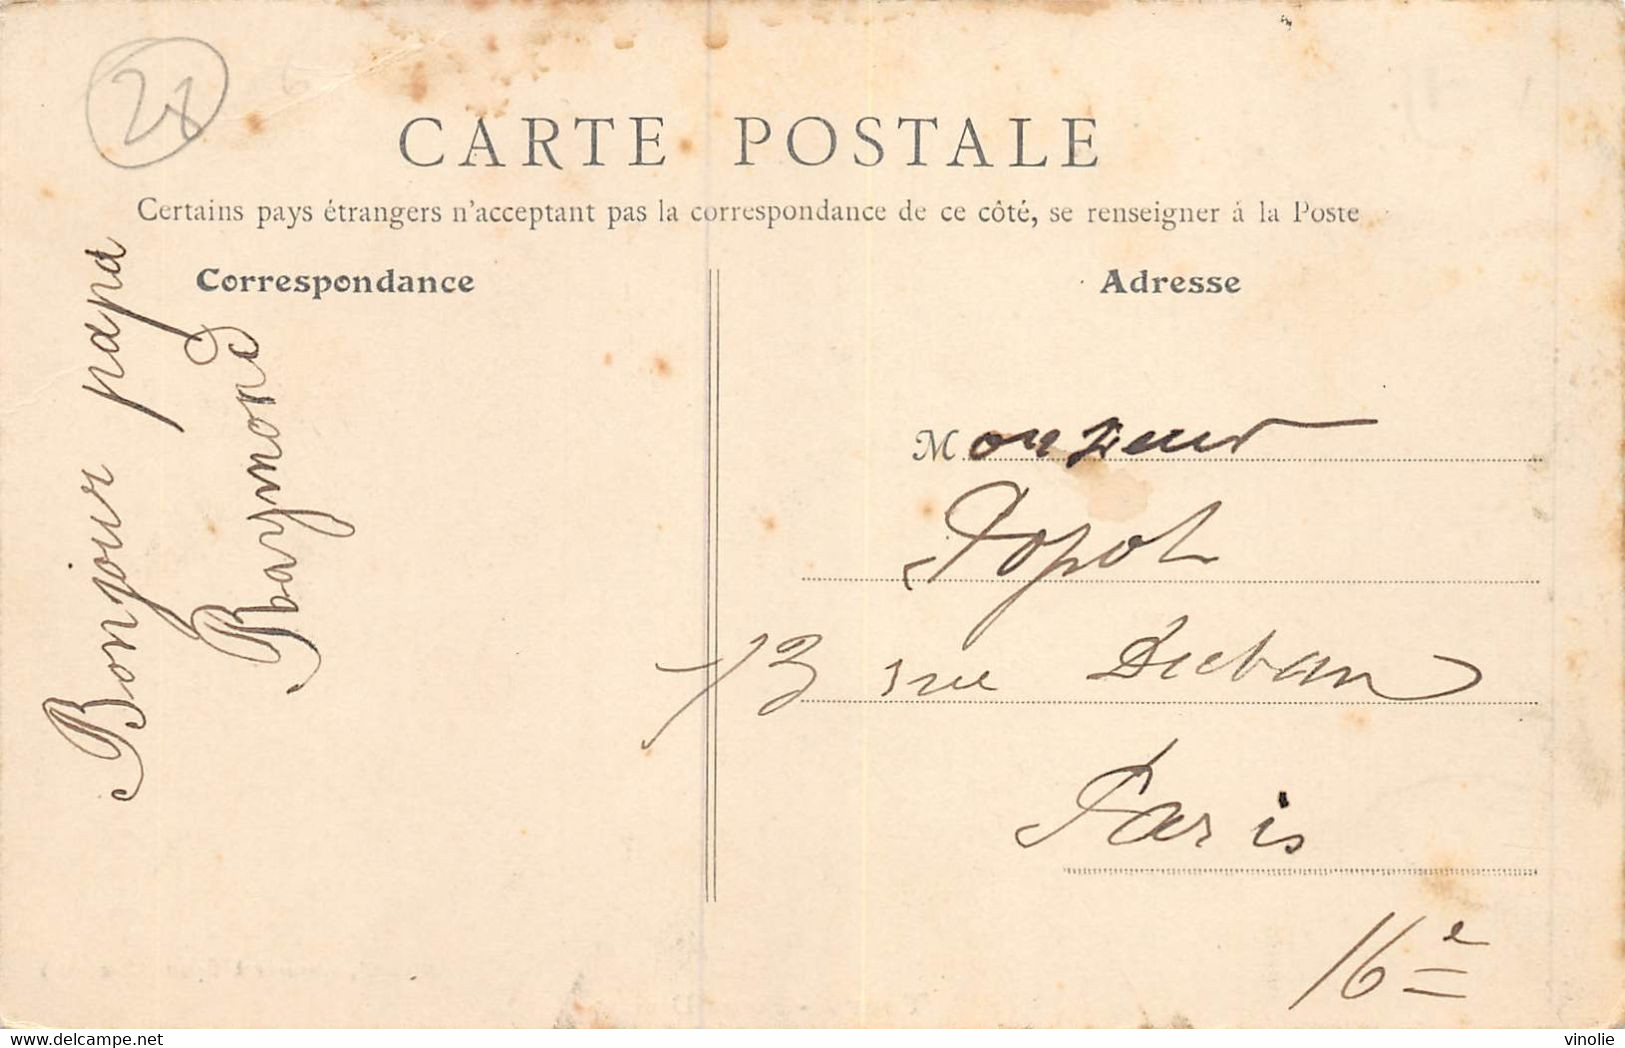 28
CARTE POSTALE
Certains pays étrangers n'acceptant pas la correspondance de ce côté, se renseigner à la Poste
Correspondance
Adresse
Bonjour papa
Raymond
Monsieur
Popot
13 rue Duban
Paris
16e
www.delcampe.net
vinolie